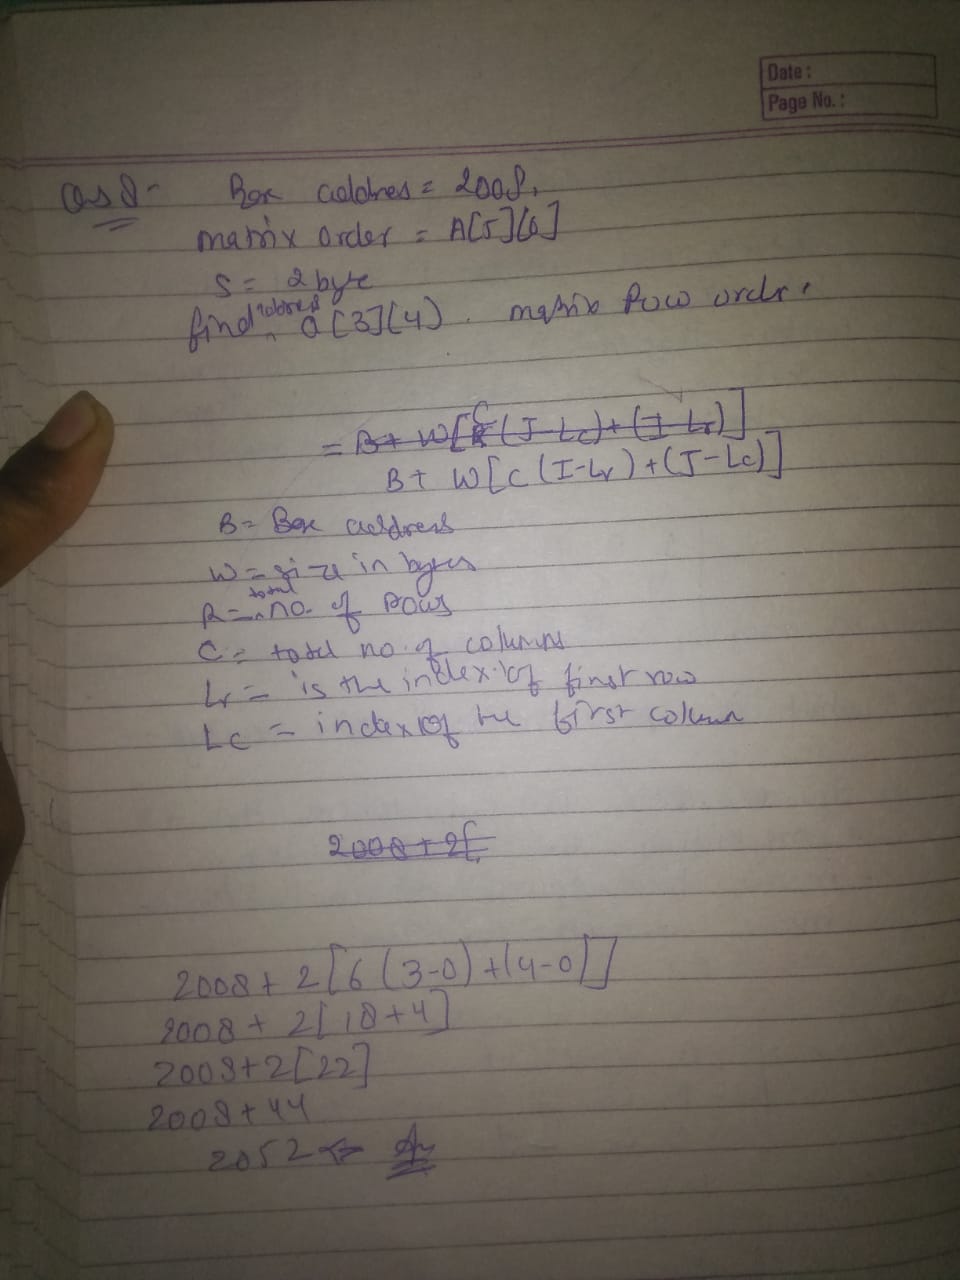 Date :
Page No. :
Qs 8- Base address = 2008,
matrix order = A[5][6]
S = 2 byte
find address a[3][4). matrix Row order.
= B+ W[C(J-Lc)+(I-Lr)]
B+ W[C(I-Lr)+(J-Lc)]
B= Base address
W = size in bytes
R= total no. of rows
C = total no. of columns
Lr = is the index of first row
Lc = index of the first column
2008+2[
2008+ 2[6(3-0)+(4-0]]
2008+ 2[18+4]
2008+2[22]
2008+44
2052 Ans